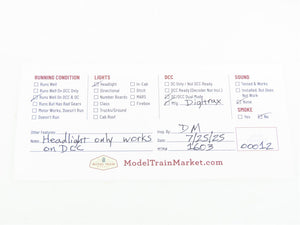 RUNNING CONDITION
Runs Well
Runs Well On DCC Only
Runs Well On DCC & DC
Runs But Has Bad Gears
Motor Works, Doesn't Run
Doesn't Run
LIGHTS
Headlight
Directional
Number Boards
Class
Truck/Ground
Cab Roof
In-Cab
Ditch
MARS
Firebox
Caboose
DCC
DC Only / Not DCC Ready
DCC Ready (Decoder Not Incl.)
DC/DCC Dual Mode
Mfg Digitrax
SOUND
Tested & Works
Installed, But Does Not Work
None
SMOKE
Yes
Other Features
Notes Headlight only works
on DCC
Prep. By DM
Date 7/25/25
1603
00012
ModelTrainMarket.com